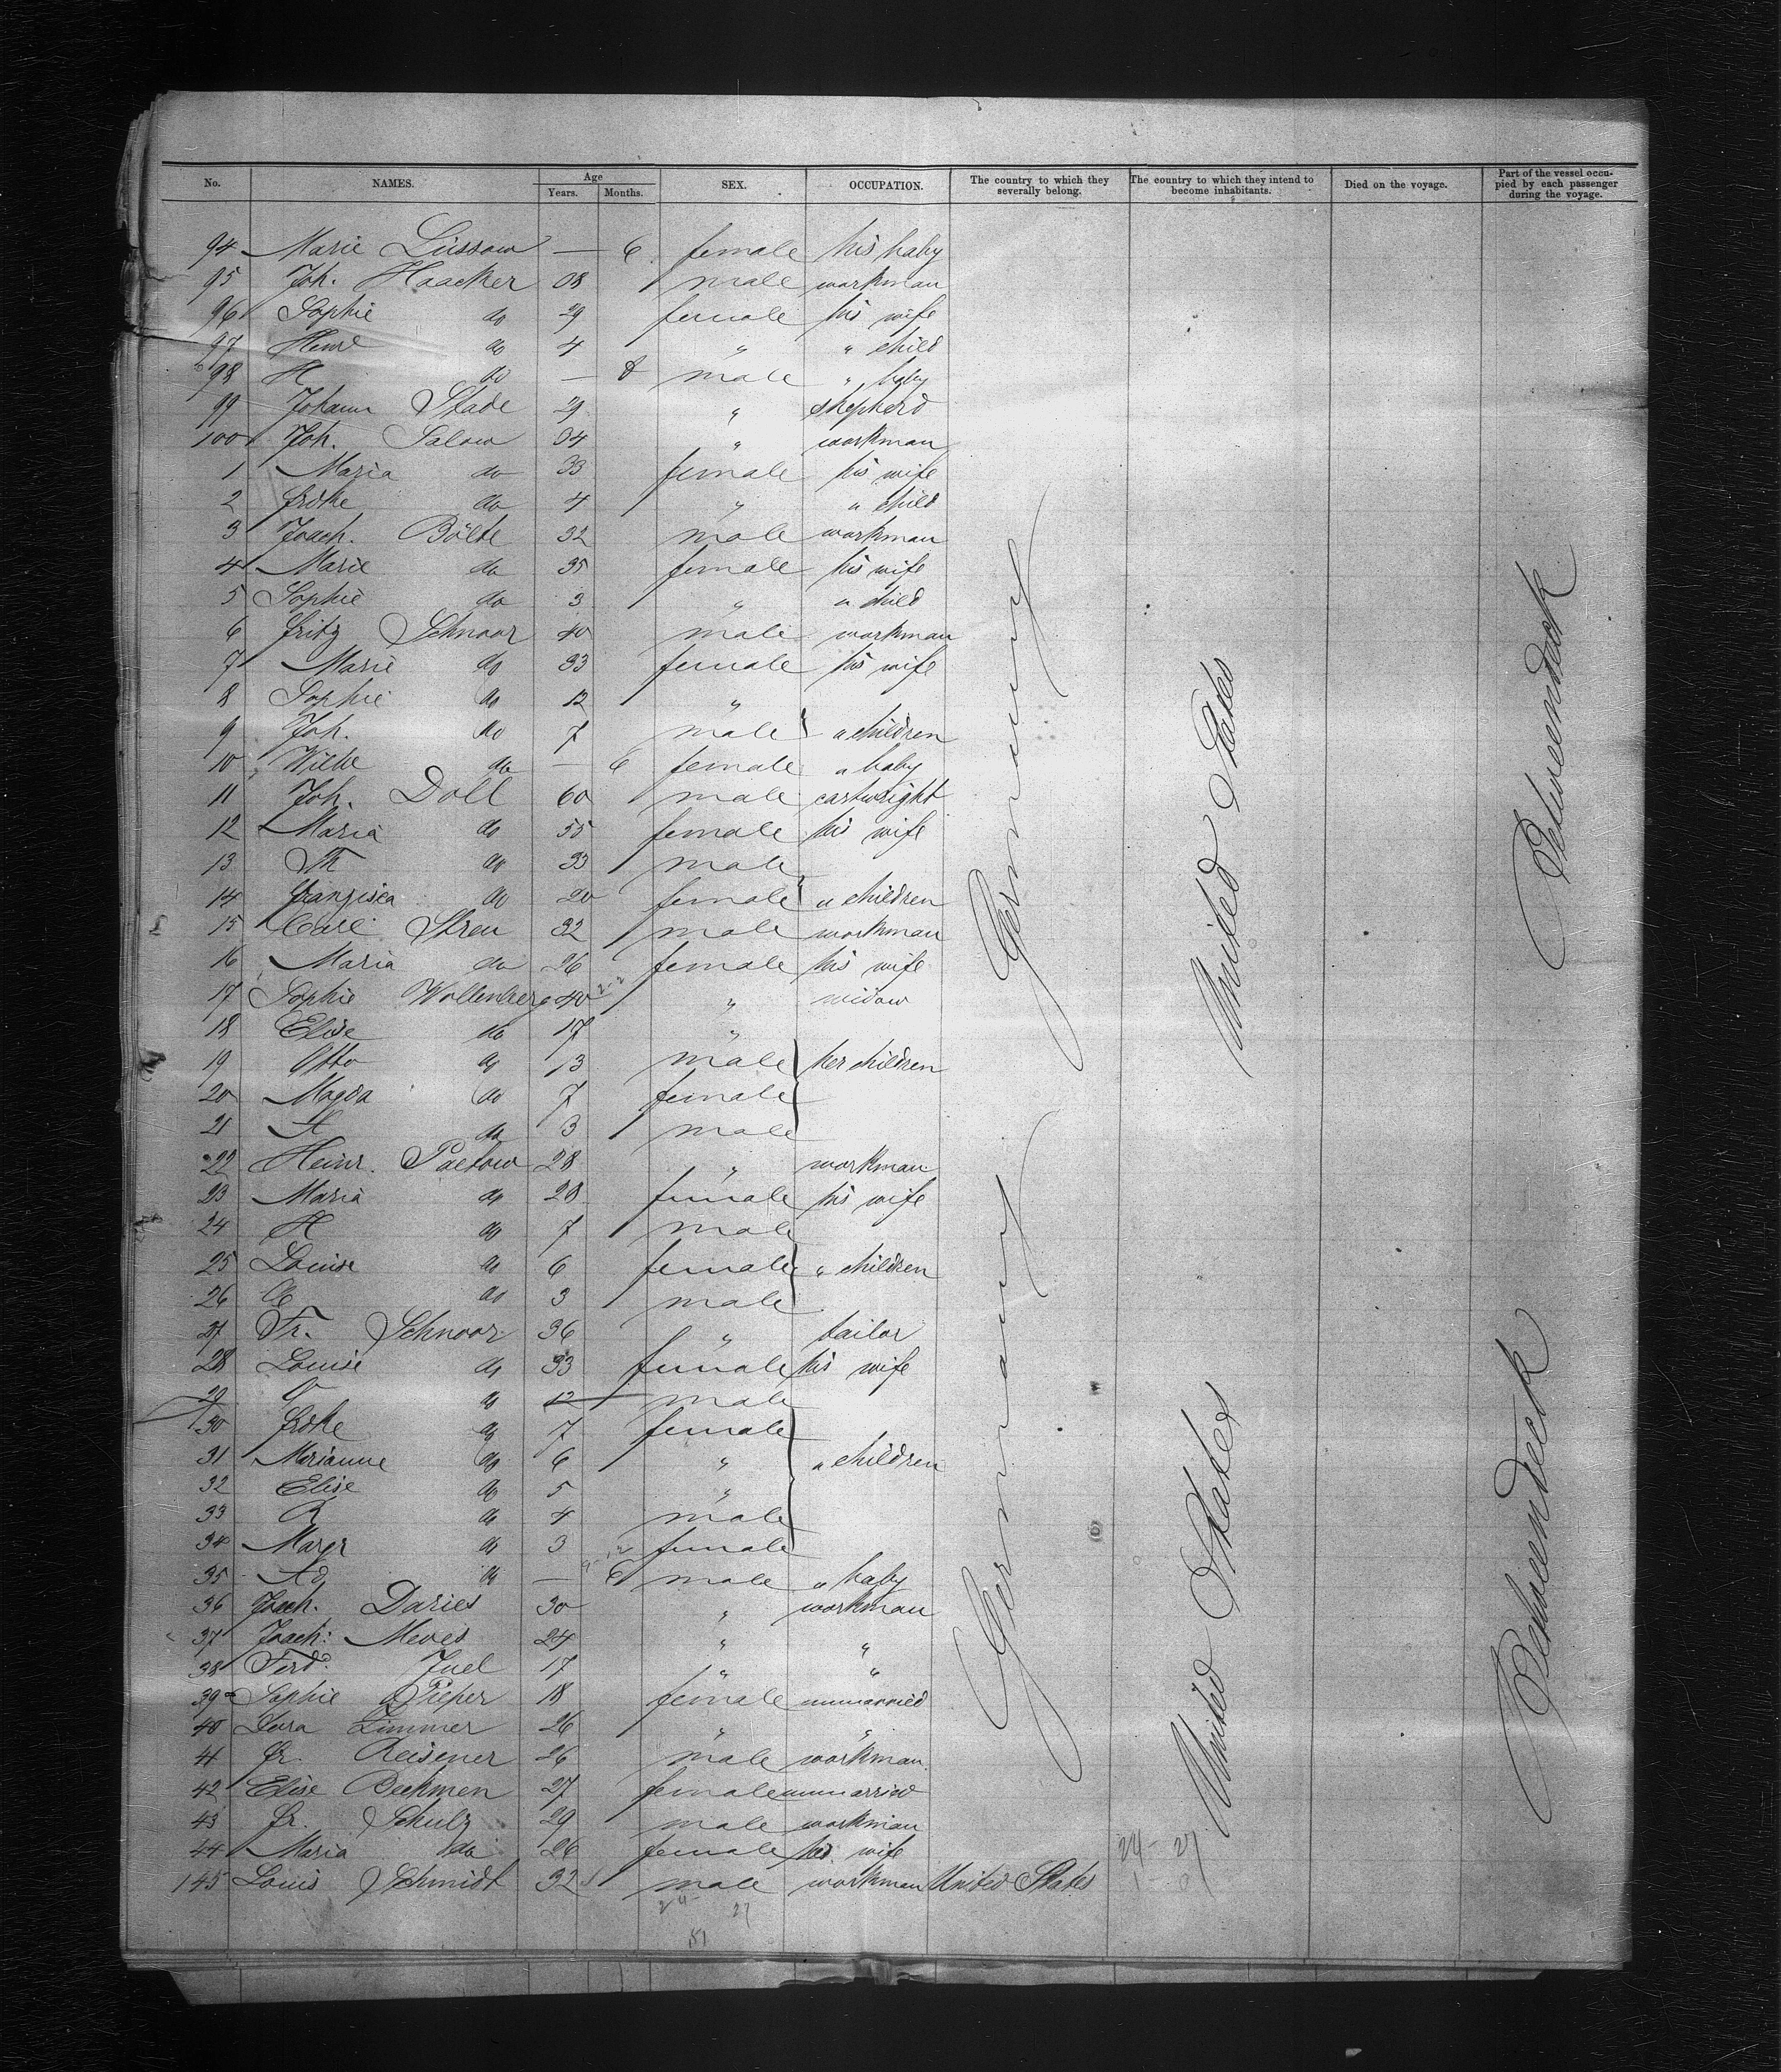 No. NAMES. Age Years. Months. SEX. OCCUPATION. The country to which they severally belong. The country to which they intend to become inhabitants. Died on the voyage. Part of the vessel occupied by each passenger during the voyage.
94 Marie Lüssow — 6 female his baby
95 Joh. Haacker 38 male workman
96 Sophie do 29 female his wife
97 do 4 " " child
98 H do — 8 male " baby
99 Johann Stade 29 " shepherd
100 Joh. Salow 34 " workman
1 Maria do 33 female his wife
2 Fridke do 4 " " child
3 Joach. Bölte 32 male workman
4 Marie do 35 female his wife
5 Sophie do 3 " " child
6 Fritz Schnoor 40 male workman
7 Marie do 33 female his wife
8 Sophie do 12 "
9 Joh. do 7 male " children
10 Wilhe do — 6 female " baby
11 Joh. Doll 60 male cartwright
12 Maria do 55 female his wife
13 Th do 33 male
14 Franzisca do 20 female " children
15 Carl Streu 32 male workman
16 Maria do 26 female his wife
17 Sophie Wollenberg 40 " widow
18 Elise do 17 "
19 Otto do 13 male her children
20 Magda do 7 female
21 A do 3 male
22 Heinr. Paetow 28 " workman
23 Maria do 28 female his wife
24 H do 7 male
25 Louise do 6 female " children
26 C do 3 male
27 Fr. Schnoor 36 " tailor
28 Louise do 33 female his wife
29 do 12 male
30 Fridke do 7 female
31 Marianne do 6 " " children
32 Elise do 5 "
33 R do 4 male
34 Margr do 3 female
35 Ad do — 6 male " baby
36 Joach. Daries 30 " workman
37 Joach: Meves 24 " "
38 Ferd. Juel 17 " "
39 Sophie Pieper 18 female unmarried
40 Dora Zimmer 26 " "
41 Fr. Reisener 26 male workman
42 Elise Beckmen 27 female unmarried
43 Fr. Schulz 29 male workman
44 Maria do 26 female his wife
145 Louis Schmidt 32 male workman United States
Germany
United States
Zwischendeck
Germany
United States
Zwischendeck
24 - 27
24 27
51